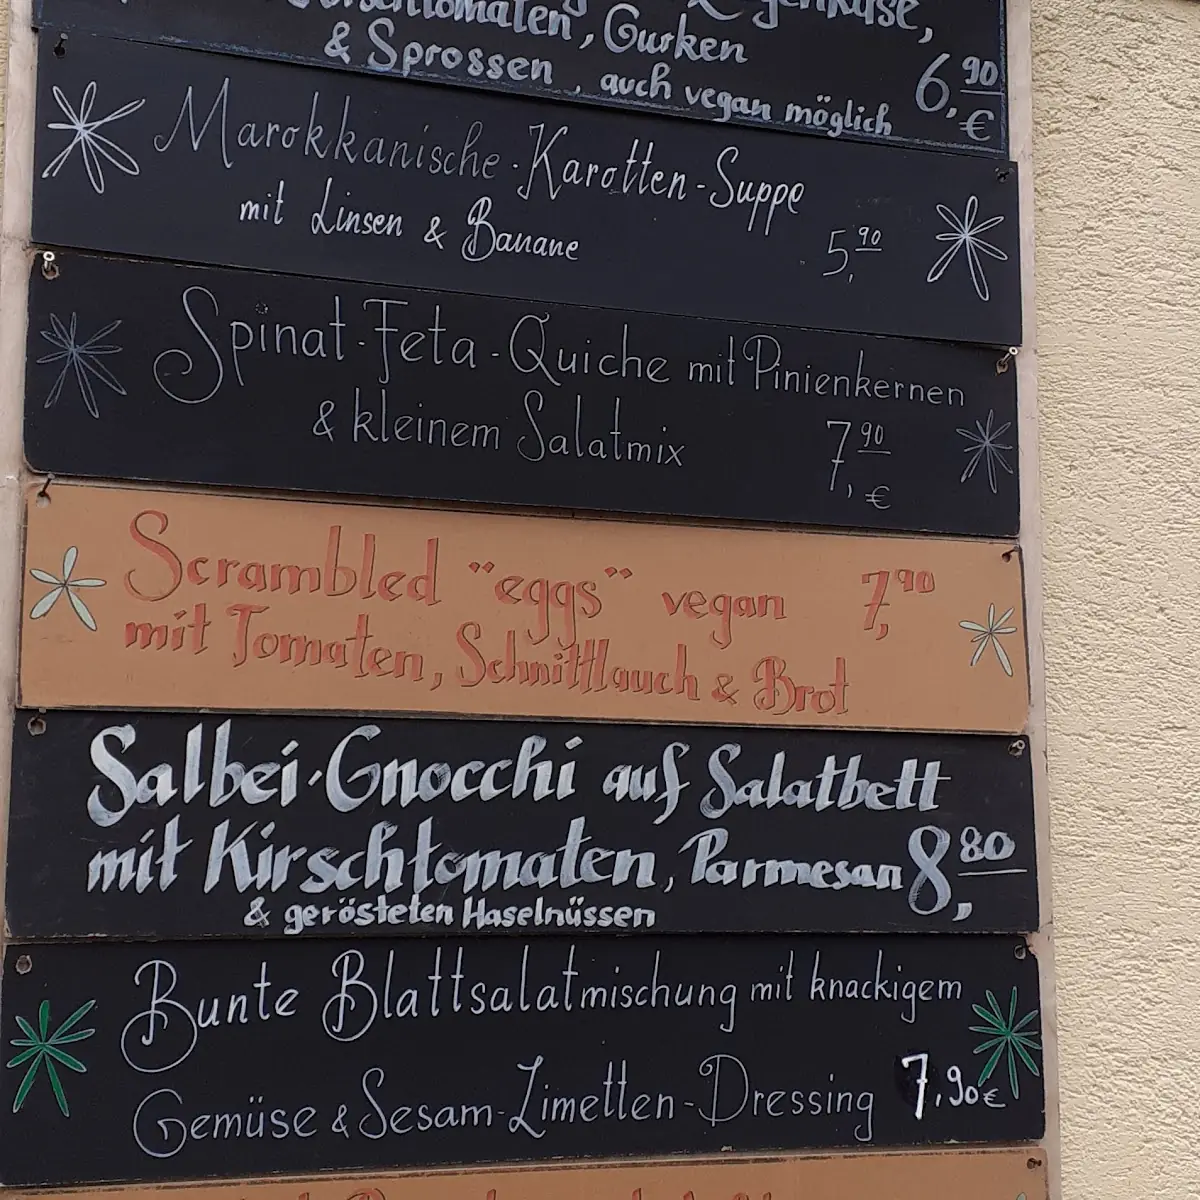 Gurken
& Sprossen, auch vegan möglich 6,90 €
Marokkanische-Karotten-Suppe
mit Linsen & Banane 5,90
Spinat-Feta-Quiche mit Pinienkernen
& kleinem Salatmix 7,90 €
Scrambled "eggs" vegan 7,90
mit Tomaten, Schnittlauch & Brot
Salbei-Gnocchi auf Salatbett
mit Kirschtomaten, Parmesan 8,80
& gerösteten Haselnüssen
Bunte Blattsalatmischung mit knackigem
Gemüse & Sesam-Limetten-Dressing 7,90€